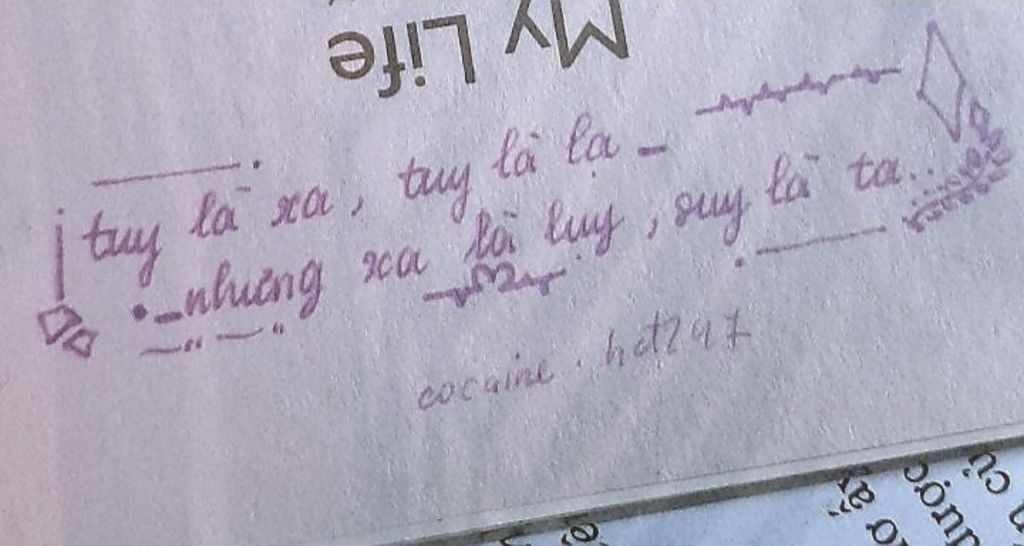 My Life
tuy là xa, tuy là lạ -
- nhưng xa là luỵ, suy là ta..
cocaine. hct247